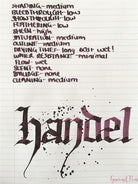 SHADING - medium
BLEEDTHROUGH - low
SHOWTHROUGH - low
FEATHERING - low
SHEEN - high
SATURATION - medium
OUTLINE - medium
DRYING TIME - long 60st wet!
WATER RESISTANCE - minimal
FLOW - wet
SCENT - none
SPILLAGE - none
CLEANING - medium
handel